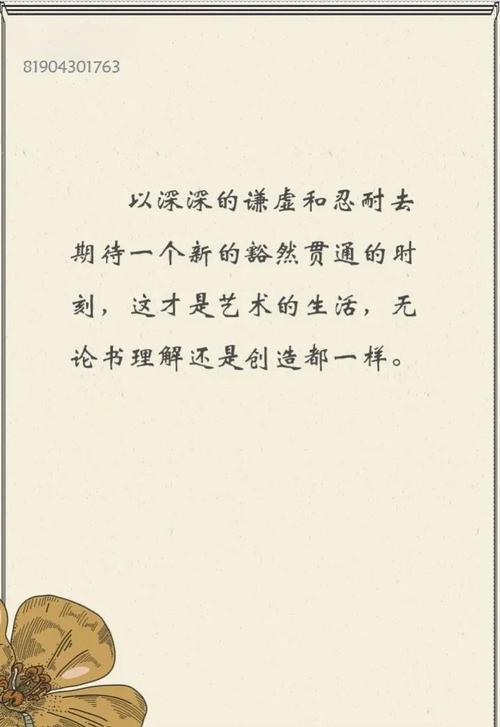 81904301763
以深深的谦虚和忍耐去
期待一个新的豁然贯通的时
刻，这才是艺术的生活，无
论书理解还是创造都一样。